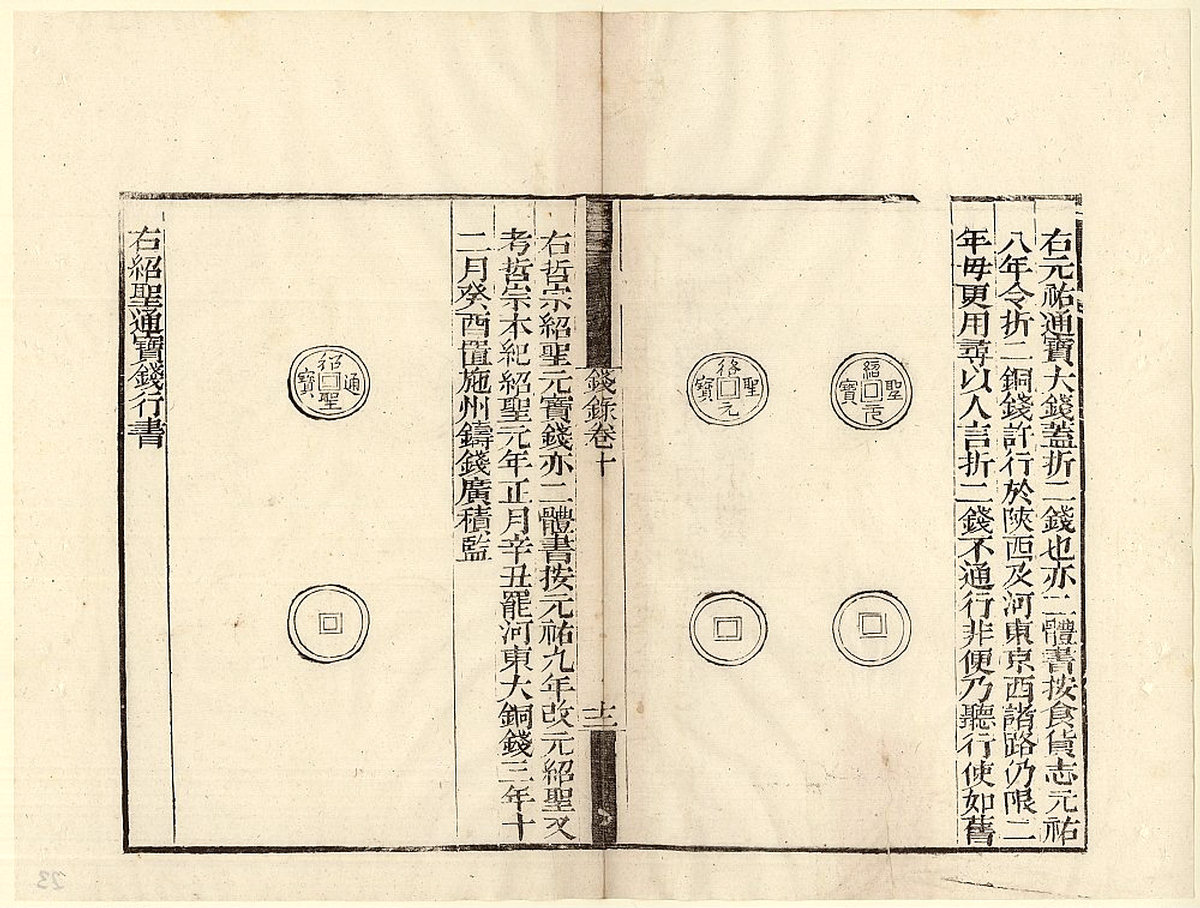 右元祐通寶大錢蓋折二錢也亦二體書按食貨志元祐
八年令折二銅錢許行於陝西及河東京西諸路仍限二
年毋更用尋以人言折二錢不通行非便乃聽行使如舊
紹聖元寶
紹聖元寶
錢錄卷十
十二
右哲宗紹聖元寶錢亦二體書按元祐九年改元紹聖又
考哲宗本紀紹聖元年正月辛丑罷河東大銅錢三年十
二月癸酉置施州鑄錢廣積監
紹聖通寶
右紹聖通寶錢行書
23